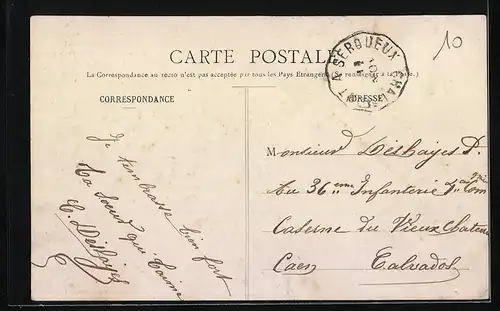 10
CARTE POSTALE
La Correspondance au recto n'est pas acceptée par tous les Pays Etrangers
CORRESPONDANCE
ADRESSE
SERQUEUX
Je t'embrasse bien fort
ta soeur qui t'aime
C. Deshayes
Monsieur Deshayes D.
Au 36eme Infanterie 7e Cie
Caserne du Vieux Chateau
Caen Calvados